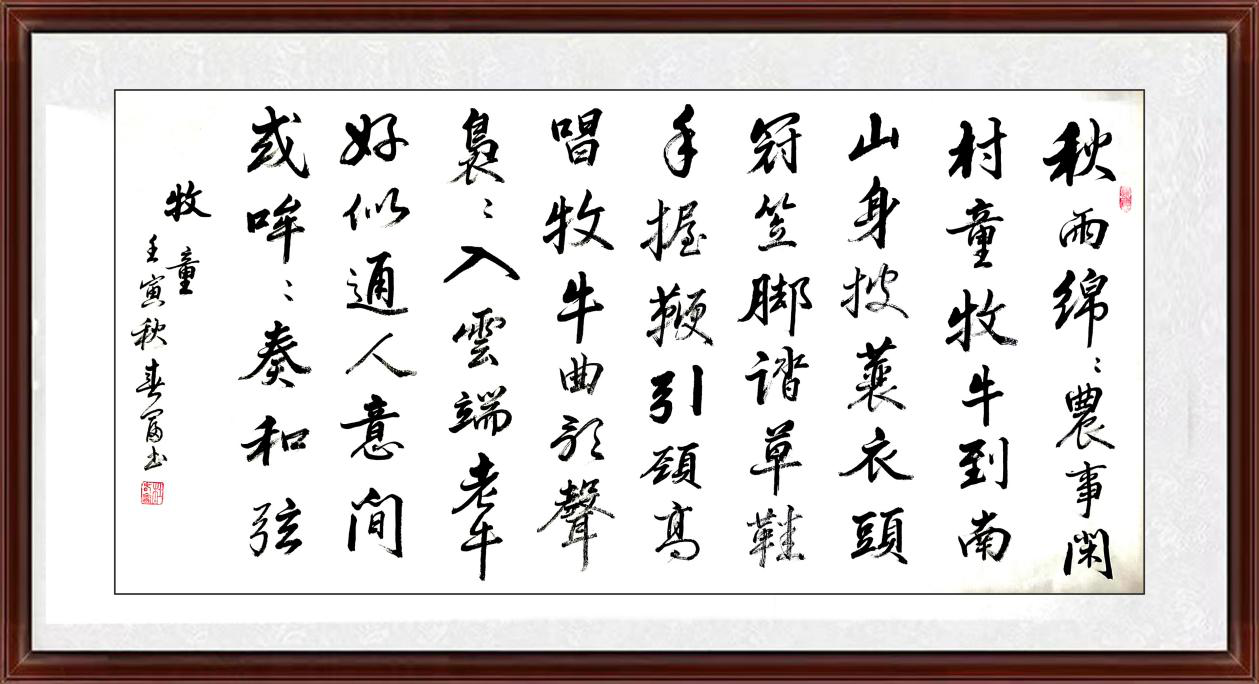 秋雨綿〻農事閑
村童牧牛到南
山身披蓑衣頭
冠笠脚踏草鞋
手握鞭引頸高
唱牧牛曲歌聲
裊〻入雲端老牛
好似通人意間
或哞〻奏和弦
牧童
壬寅秋春富书